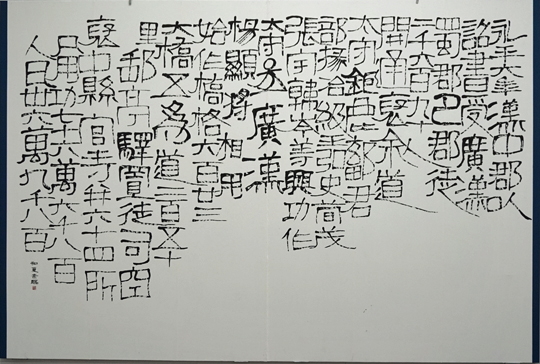 永平六年漢中郡以
詔書受廣漢
蜀郡巴郡徒
二千六百九十
開通褒余道
太守鉅鹿鄐君
部掾治級王弘史荀茂
張宇韓岑等興功作
太守丞廣漢
楊顯將相用
始作橋格六百廿三
大橋五為道二百五十
里郵亭驛置徒司空
褒中縣官寺并六十四所
凡用功七十六萬六千八百
人日卅六萬九千八百